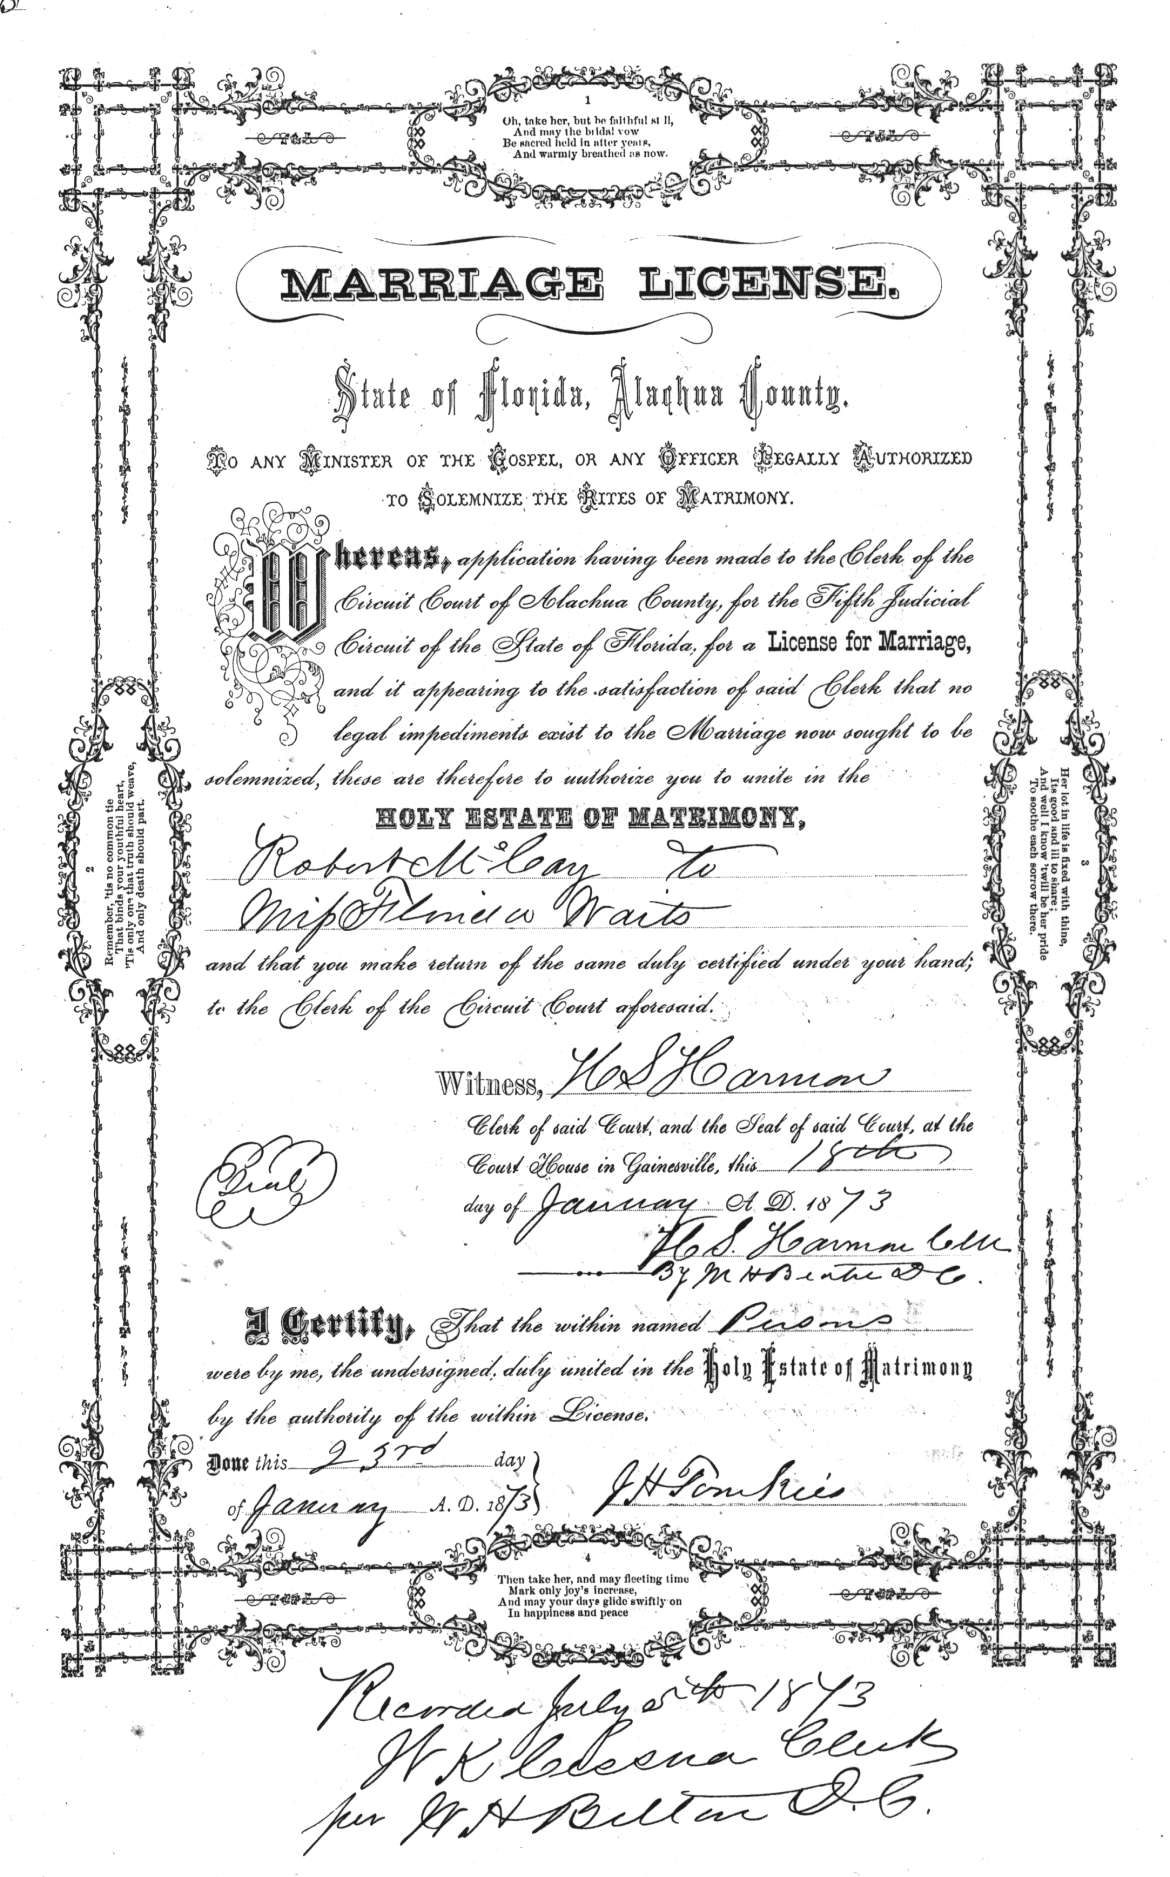 1
Oh, take her, but be faithful still,
And may the bridal vow
Be sacred held in after years,
And warmly breathed as now.
MARRIAGE LICENSE.
State of Florida, Alachua County.
TO ANY MINISTER OF THE GOSPEL, OR ANY OFFICER LEGALLY AUTHORIZED
TO SOLEMNIZE THE RITES OF MATRIMONY.
Whereas, application having been made to the Clerk of the
Circuit Court of Alachua County, for the Fifth Judicial
Circuit of the State of Florida, for a License for Marriage,
and it appearing to the satisfaction of said Clerk that no
legal impediments exist to the Marriage now sought to be
solemnized, these are therefore to authorize you to unite in the
HOLY ESTATE OF MATRIMONY,
Robert McCay to
Miss Waits
and that you make return of the same duly certified under your hand;
to the Clerk of the Circuit Court aforesaid.
2
Remember, 'tis no common tie
That binds your youthful heart,
'Tis only one that truth should weave,
And only death should part.
3
Her lot in life is fixed with thine,
Its good and ill to share;
And well I know 'twill be her pride
To soothe each sorrow there.
Witness, H S Harmon
Clerk of said Court, and the Seal of said Court, at the
Court House in Gainesville, this 18th
day of January A. D. 1873
Seal
H. S. Harmon Clk
By D C.
I Certify, That the within named Persons
were by me, the undersigned, duly united in the Holy Estate of Matrimony
by the authority of the within License.
Done this 23rd day
of January A. D. 1873
J H Tomkies
4
Then take her, and may fleeting time
Mark only joy's increase,
And may your days glide swiftly on
In happiness and peace
Recorded July 5th 1873
W K Cessna Clerk
per W H Belton D. C.